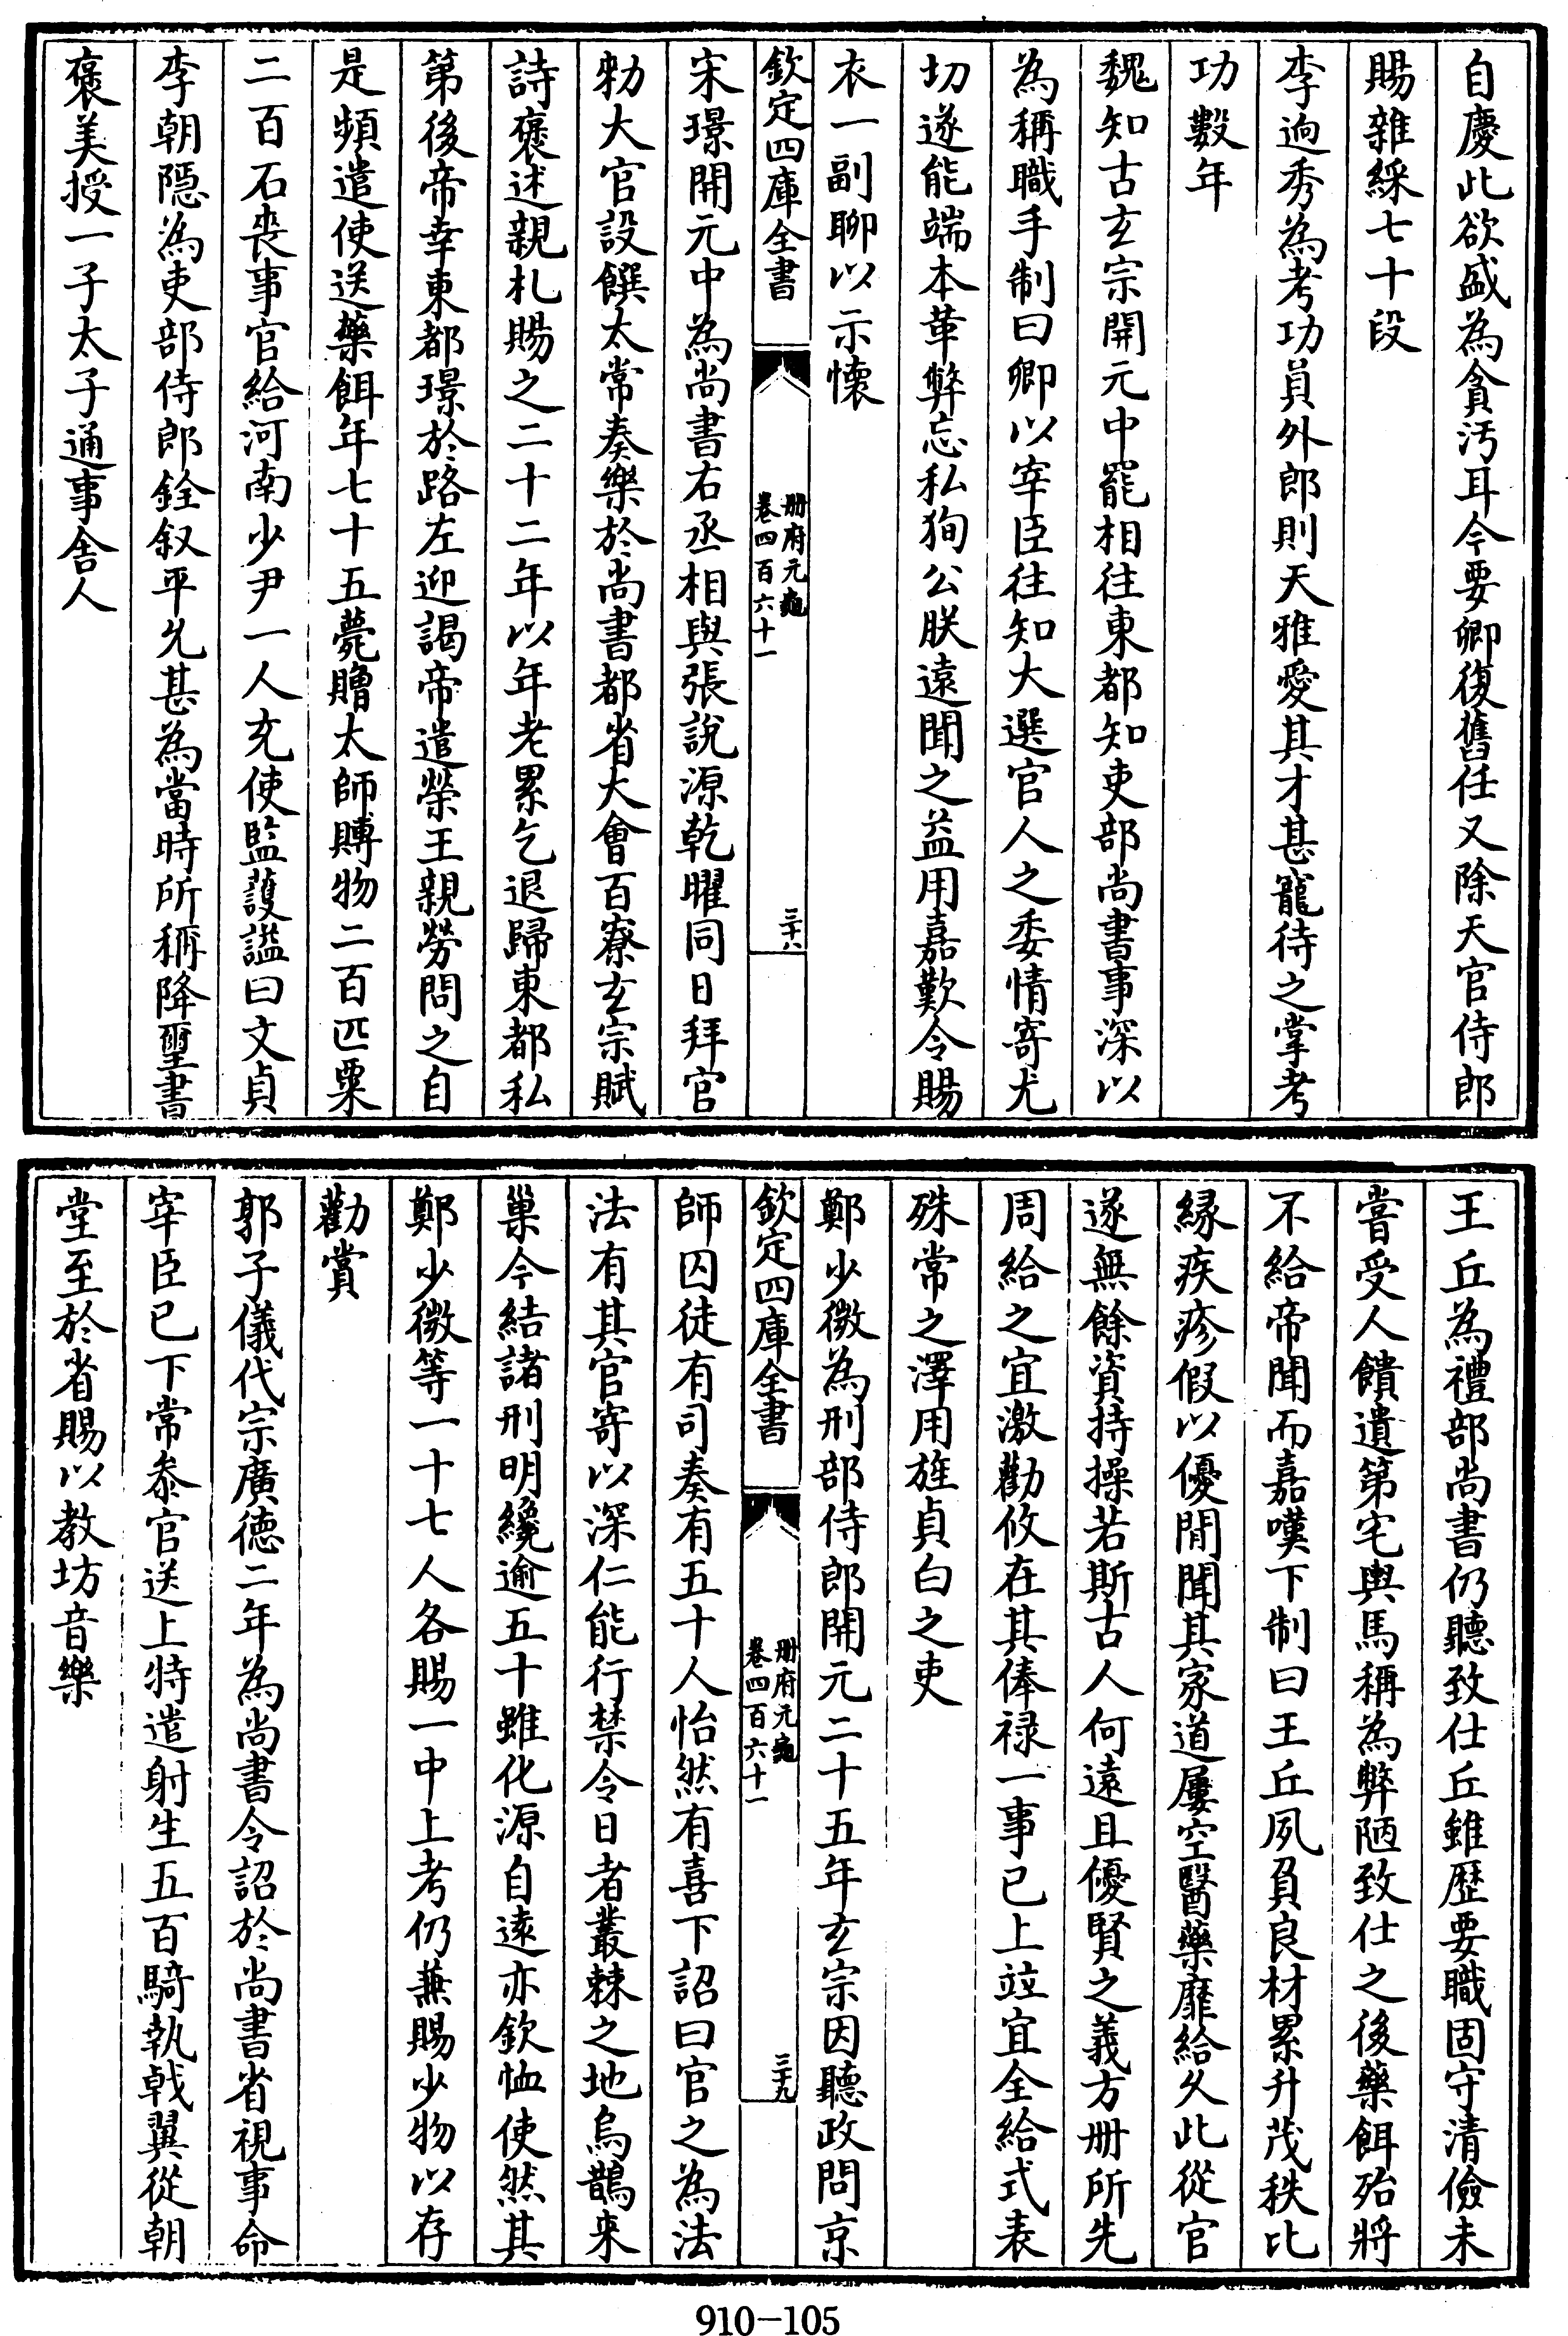 自慶此欲盛為貪汚耳今要卿復舊任又除天官侍郎
賜雜綵七十段
李逈秀為考功員外郎則天雅愛其才甚寵待之掌考
功數年
魏知古玄宗開元中罷相往東都知吏部尚書事深以
為稱職手制曰卿以宰臣往知大選官人之委情寄尤
切遂能端本革弊忘私狥公朕遠聞之益用嘉歎今賜
衣一副聊以示懷
欽定四庫全書
册府元龜
卷四百六十一
三十八
宋璟開元中為尚書右丞相與張説源乾曜同日拜官
勑大官設饌太常奏樂於尚書都省大會百寮玄宗賦
詩褒述親札賜之二十二年以年老累乞退歸東都私
第後帝幸東都璟於路左迎謁帝遣榮王親勞問之自
是頻遣使送藥餌年七十五薨贈太師賻物二百匹粟
二百石喪事官給河南少尹一人充使監護諡曰文貞
李朝隱為吏部侍郎銓叙平允甚為當時所稱降璽書
褒美授一子太子通事舍人
王丘為禮部尚書仍聽致仕丘雖歴要職固守清儉未
嘗受人饋遺第宅輿馬稱為弊陋致仕之後藥餌殆將
不給帝聞而嘉嘆下制曰王丘夙負良材累升茂秩比
緣疾疹假以優閒聞其家道屢空醫藥靡給久此從官
遂無餘資持操若斯古人何遠且優賢之義方册所先
周給之宜激勸攸在其俸禄一事已上竝宜全給式表
殊常之澤用旌貞白之吏
鄭少微為刑部侍郎開元二十五年玄宗因聽政問京
欽定四庫全書
册府元龜
卷四百六十一
三十九
師囚徒有司奏有五十人怡然有喜下詔曰官之為法
法有其官寄以深仁能行禁令日者叢棘之地烏鵲来
巢今結諸刑明纔逾五十雖化源自逺亦欽恤使然其
鄭少微等一十七人各賜一中上考仍兼賜少物以存
勸賞
郭子儀代宗廣徳二年為尚書令詔於尚書省視事命
宰臣已下常叅官送上特遣射生五百騎執戟翼從朝
堂至於省賜以教坊音樂
910-105